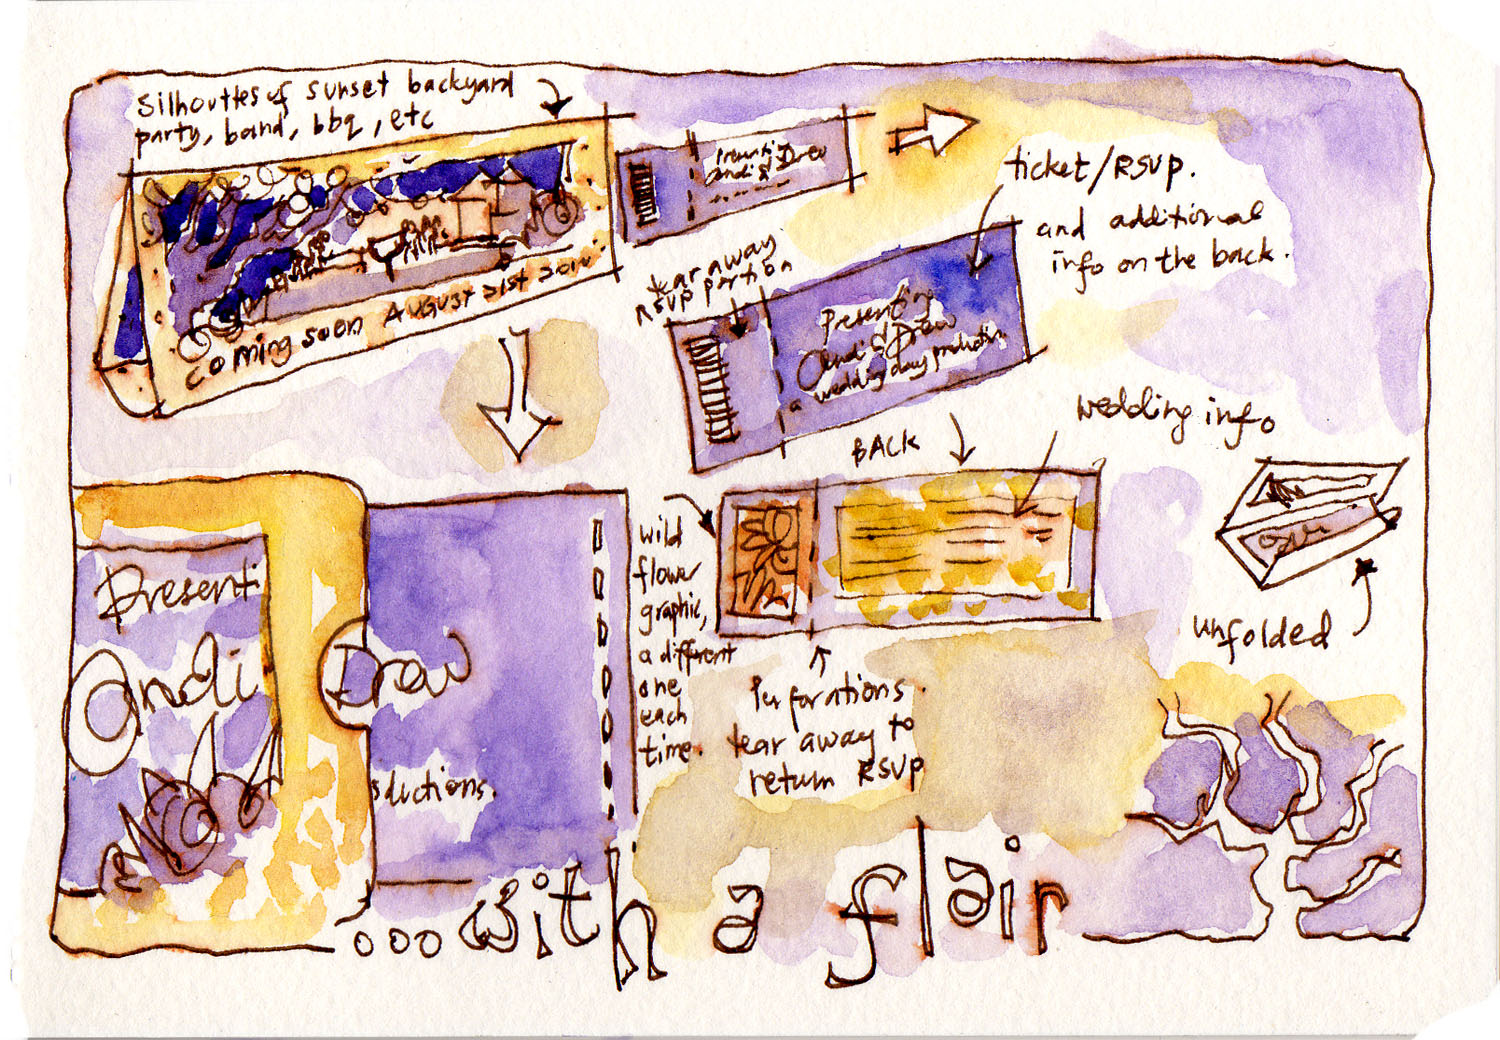 Silhouttes of sunset backyard
party, band, bbq, etc
coming soon AUGUST 21ST 2010
Presenting
Andi & Drew
ticket/RSVP.
and additional
info on the back.
tear away
RSVP portion
Presenting
Andi & Drew
a wedding day production
BACK
wedding info
unfolded
Presenti
Andi
Drew
ductions.
wild
flower
graphic,
a different
one
each
time.
Perforations.
tear away to
return RSVP
...with a flair